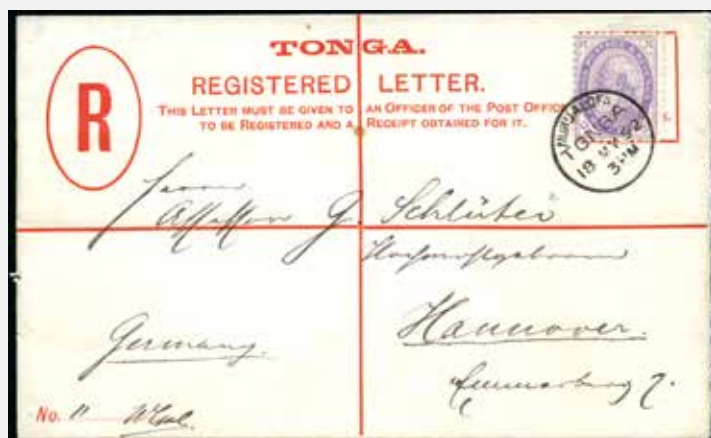 TONGA.
R
REGISTERED LETTER.
THIS LETTER MUST BE GIVEN TO AN OFFICER OF THE POST OFFICE
TO BE REGISTERED AND A RECEIPT OBTAINED FOR IT.
NUKUALOFA
TONGA
18 MY 92
3 PM
Herrn
Assessor G. Schlüter
Germany.
Hannover.
Emmerberg 7.
No. 11